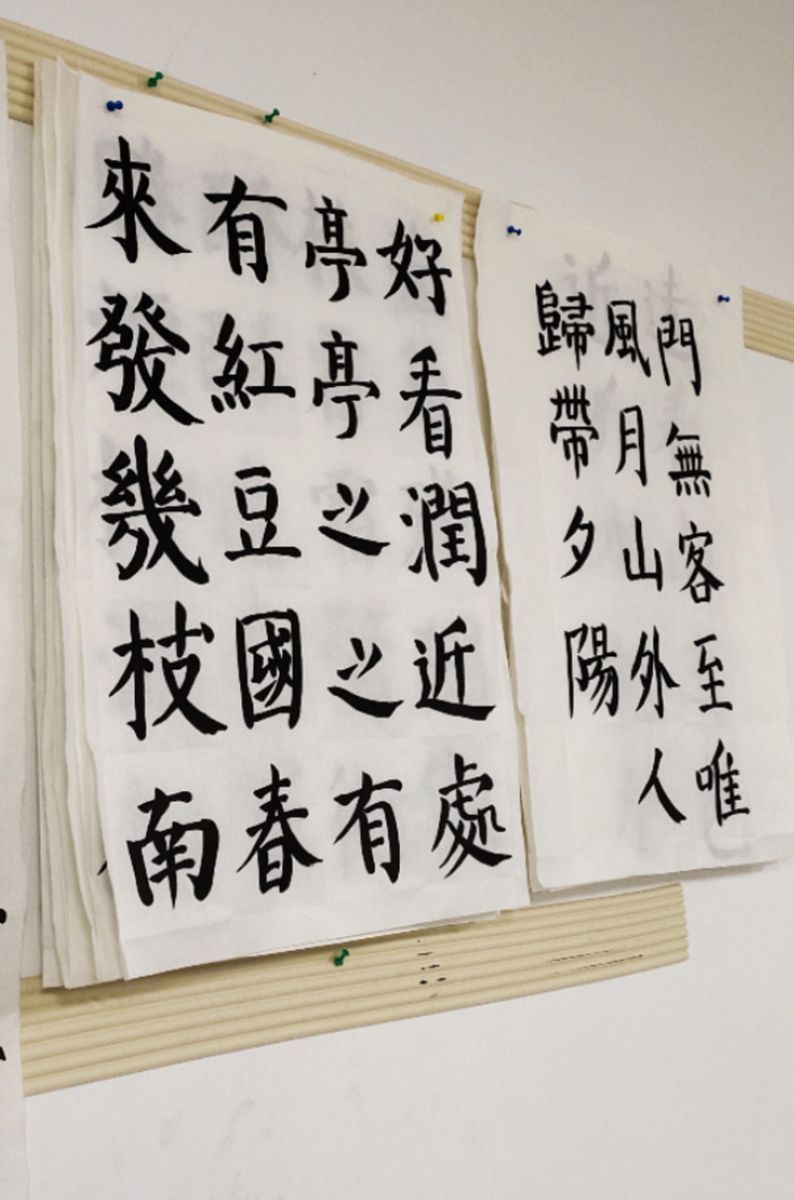 門無客至唯
風月山外人
歸帶夕陽
好看潤近處
亭亭之之有
有紅豆國春
來發幾枝南